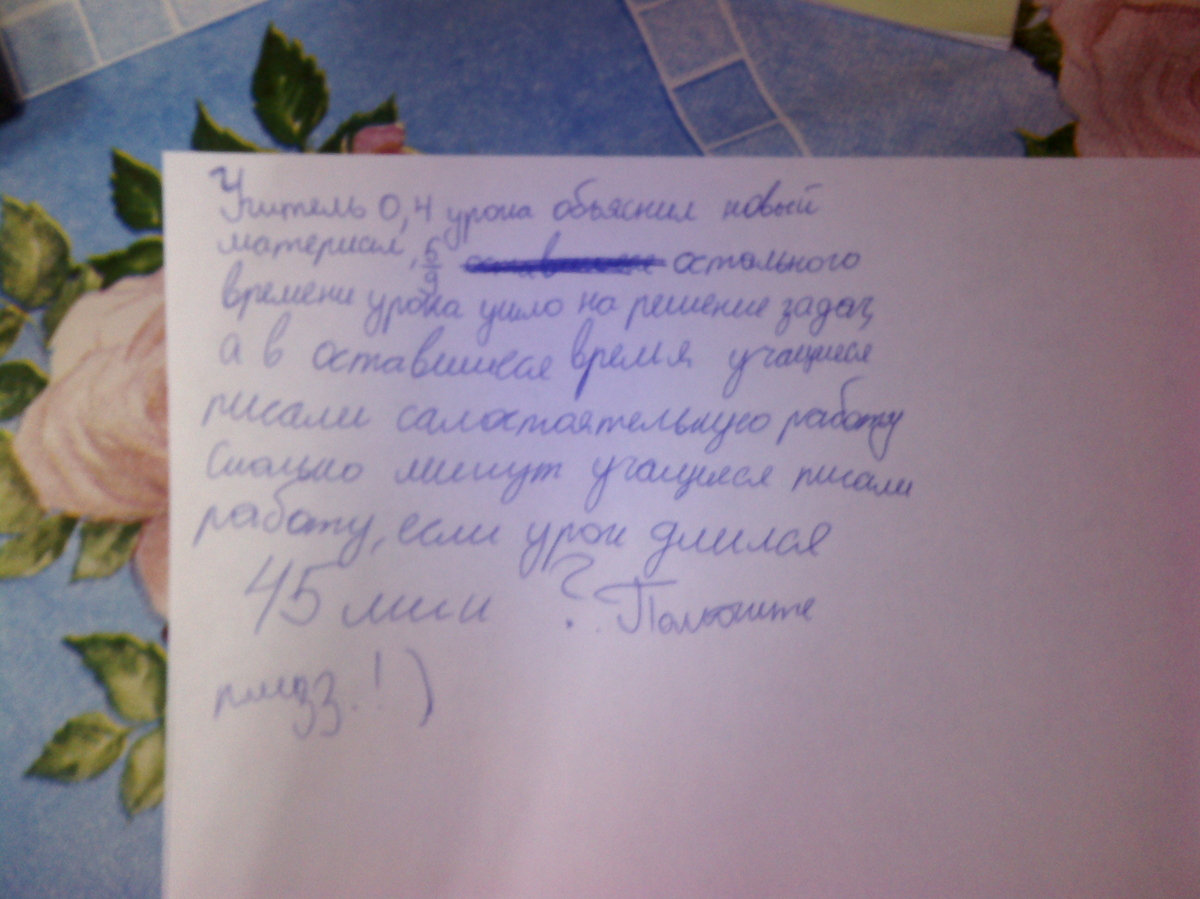 Учитель 0,4 урока объяснил новый
материал, 5/9 остального
времени урока ушло на решение задач,
а в оставшиеся время учащиеся
писали самостоятельную работу
Сколько минут учащиеся писали
работу, если урок длился
45 мин ? Помогите
плиззз.!)